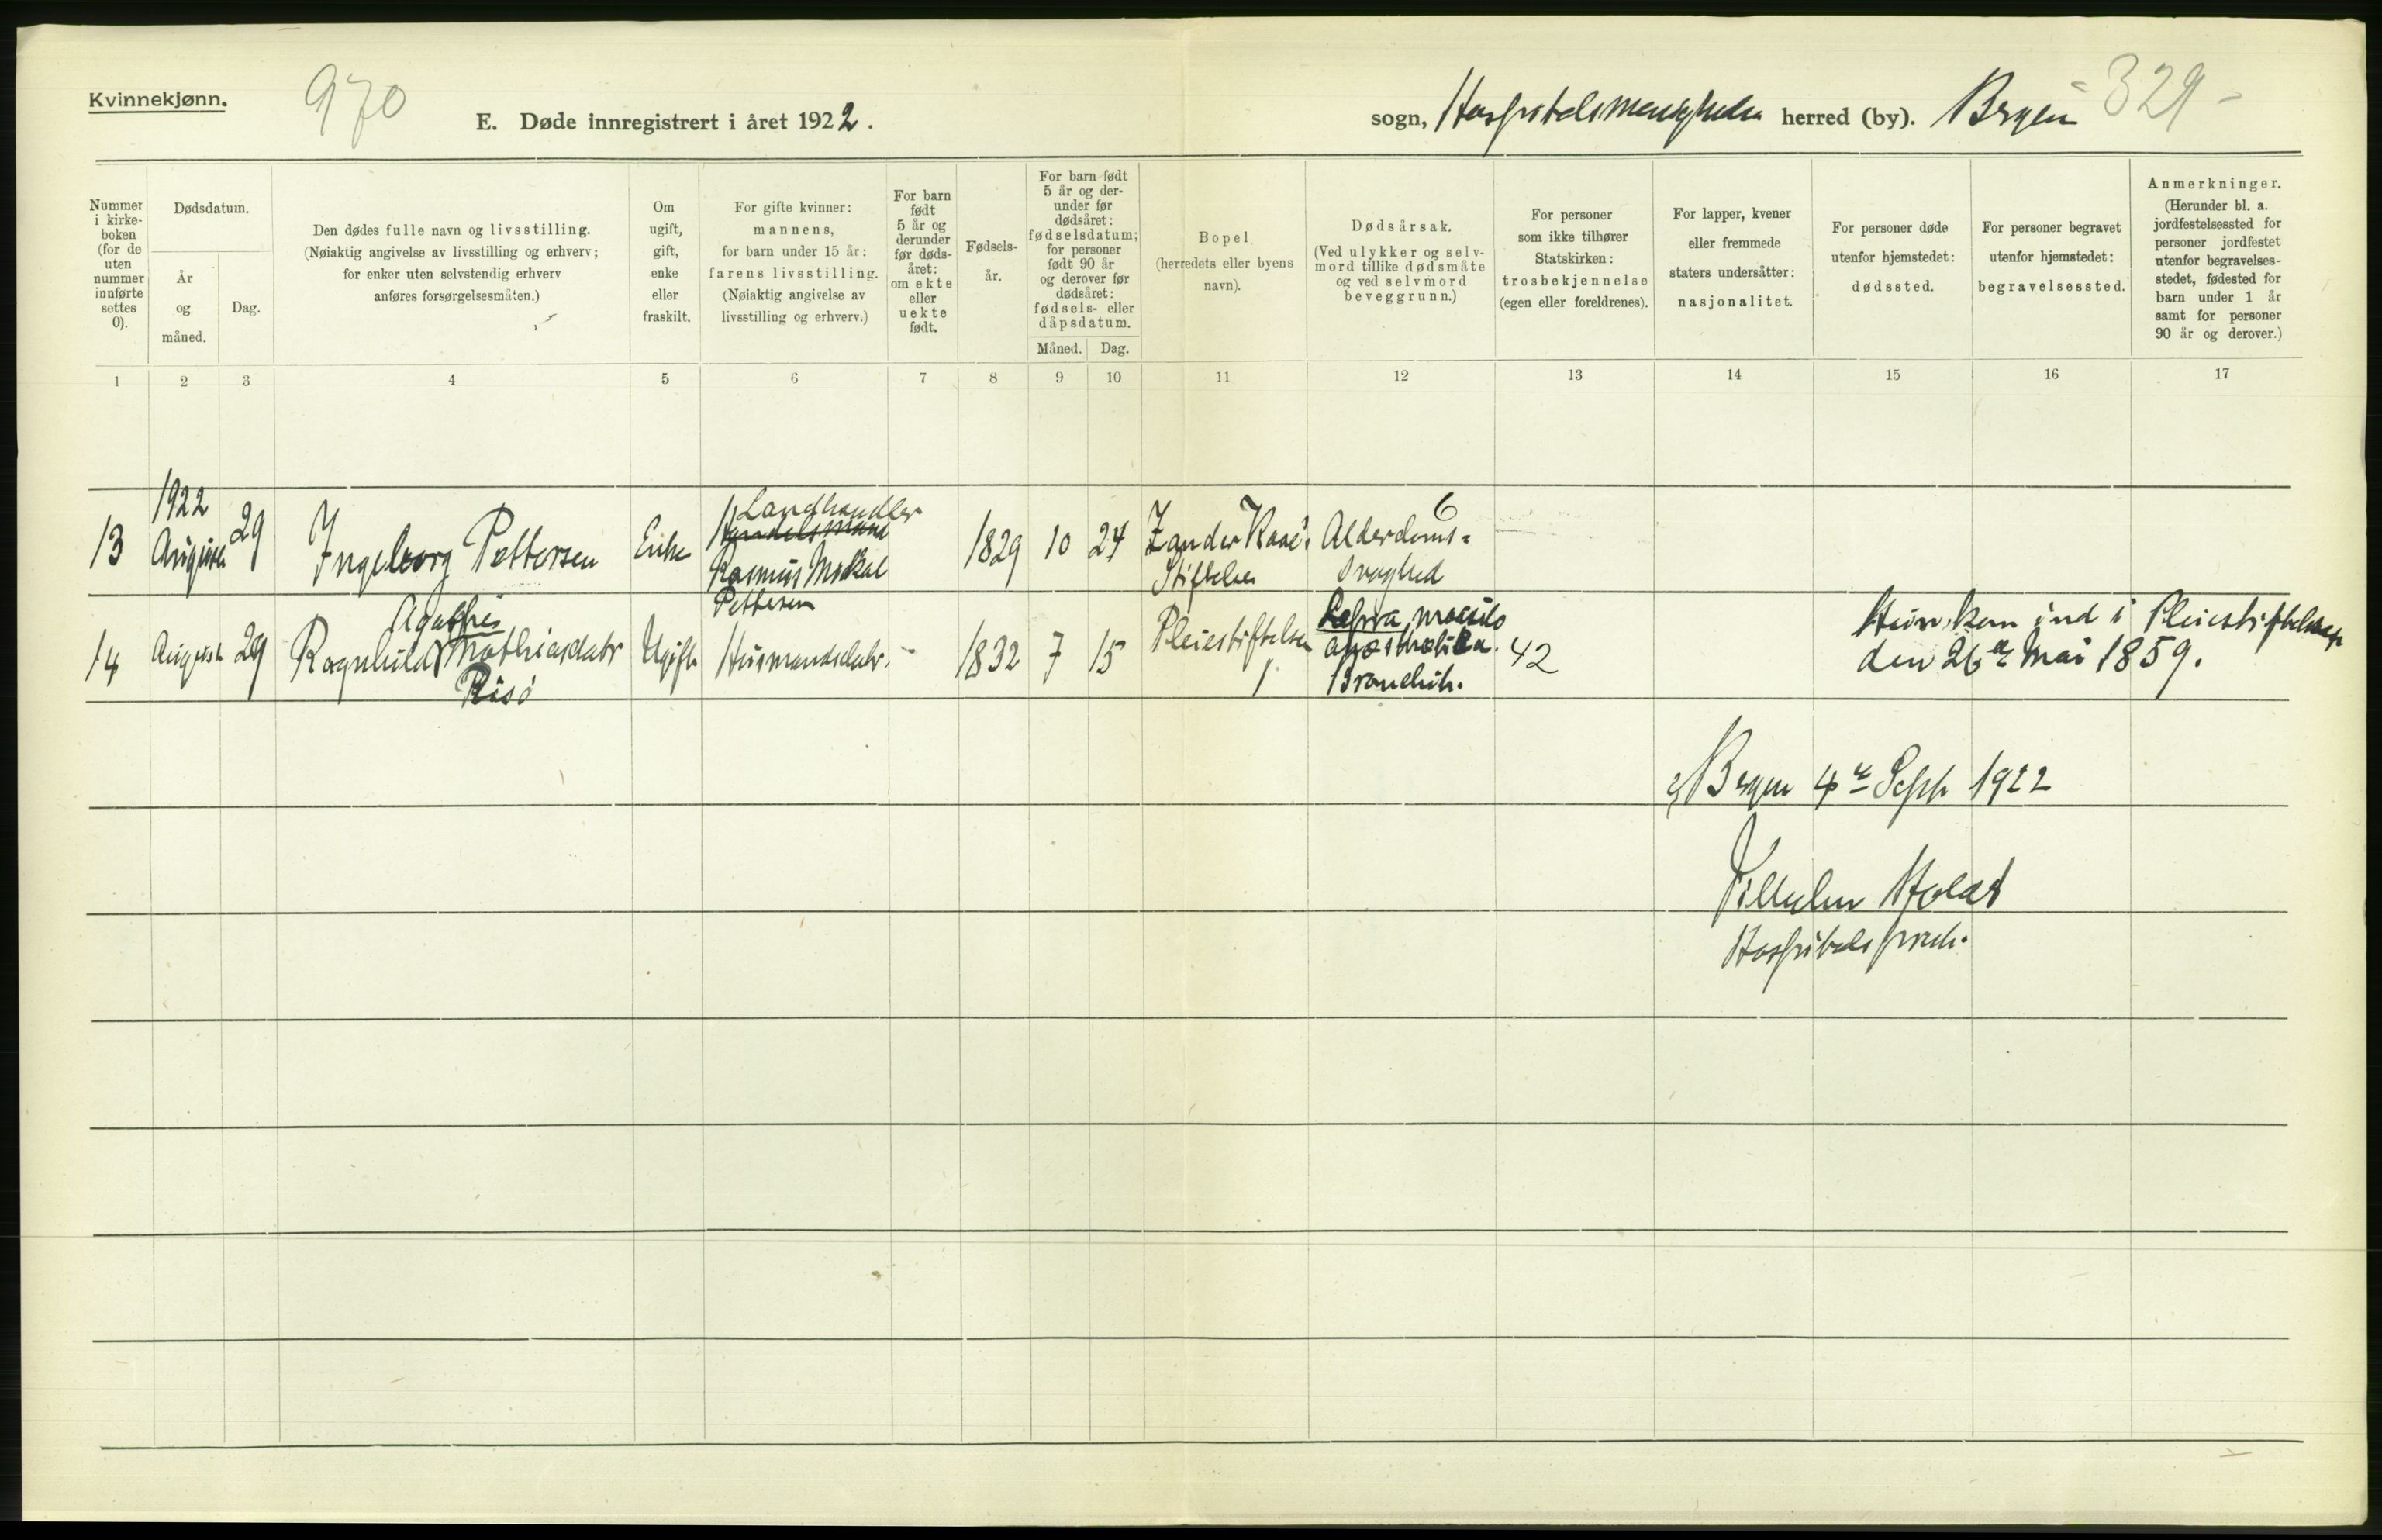 Kvinnekjønn.
970
E. Døde innregistrert i året 1922.
sogn, Hospitalsmenigheden herred (by). Bergen
329
Nummer i kirke-boken (for de uten nummer innførte settes 0).
Dødsdatum.
År og måned.
Dag.
Den dødes fulle navn og livsstilling.
(Nøiaktig angivelse av livsstilling og erhverv;
for enker uten selvstendig erhverv
anføres forsørgelsesmåten.)
Om ugift, gift, enke eller fraskilt.
For gifte kvinner:
mannens,
for barn under 15 år:
farens livsstilling.
(Nøiaktig angivelse av
livsstilling og erhverv.)
For barn født 5 år og derunder før døds-året: om ekte eller uekte født.
Fødsels-år.
For barn født 5 år og der-under før dødsåret: fødselsdatum; for personer født 90 år og derover før dødsåret: fødsels- eller dåpsdatum.
Måned.
Dag.
Bopel
(herredets eller byens
navn).
Dødsårsak.
(Ved ulykker og selv-
mord tillike dødsmåte
og ved selvmord
beveggrunn.)
For personer
som ikke tilhører
Statskirken:
trosbekjennelse
(egen eller foreldrenes).
For lapper, kvener
eller fremmede
staters undersåtter:
nasjonalitet.
For personer døde
utenfor hjemstedet:
dødssted.
For personer begravet
utenfor hjemstedet:
begravelsessted.
Anmerkninger.
(Herunder bl. a.
jordfestelsessted for
personer jordfestet
utenfor begravelses-
stedet, fødested for
barn under 1 år
samt for personer
90 år og derover.)
1 2 3 4 5 6 7 8 9 10 11 12 13 14 15 16 17
1922
13 August 29 Ingeborg Pettersen Enke
Landhandler
Handelsmand
Rasmus Mikal
Pettersen
1829 10 24
Zander Kaae's
Stiftelse
6
Alderdoms-
svaghed
14 August 29
Agathe
Ragnhild Mathiasdatr
Risö
Ugift Husmandsdatr. 1832 7 15
Pleiestiftelsen
1
Lepra maculo
anæsthetica.
Bronchit.
42
Hun kom ind i Pleiestiftelsen
den 26de Mai 1859.
Bergen 4de Sept 1922
Vilhelm Holdt
Hospitalspræst.